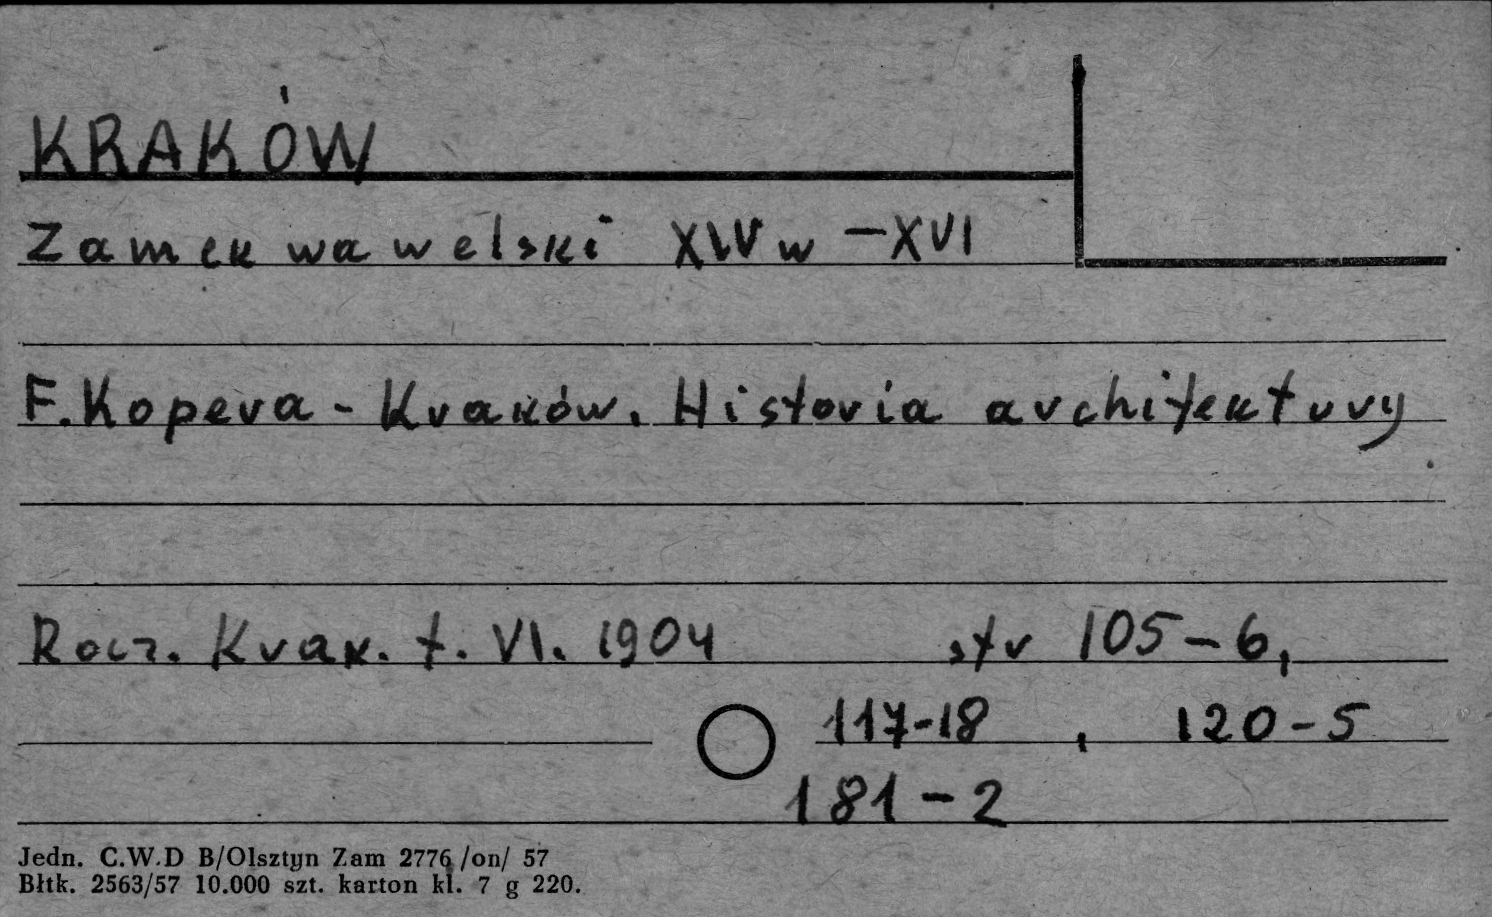 KRAKÓW
Zamek wawelski XIV w – XVI
F. Kopera - Kraków. Historia architektury
Rocz. Krak. t. VI. 1904 str 105-6,
117-18 , 120-5
181-2
Jedn. C.W.D B/Olsztyn Zam 2776 /on/ 57
Błtk. 2563/57 10.000 szt. karton kl. 7 g 220.